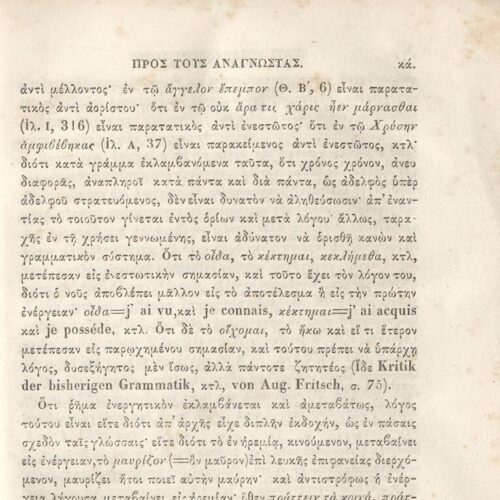 ΠΡΟΣ ΤΟΥΣ ΑΝΑΓΝΩΣΤΑΣ. κά.
ἀντὶ μέλλοντος· ἐν τῷ ἄγγελον ἔπεμπον (Θ. Β΄, 6) εἶναι παρατα-
τικὸς ἀντὶ ἀορίστου· ὅτι ἐν τῷ οὐκ ἄρα τις χάρις ἦεν μάρνασθαι
(Ἰλ. Ι, 316) εἶναι παρατατικὸς ἀντὶ ἐνεστῶτος· ὅτι ἐν τῷ Χρύσην
ἀμφιβέβηκας (Ἰλ. Α, 37) εἶναι παρακείμενος ἀντὶ ἐνεστῶτος, κτλ·
διότι κατὰ γράμμα ἐκλαμβανόμενα ταῦτα, ὅτι χρόνος χρόνον, ἄνευ
διαφορᾶς, ἀναπληροῖ κατὰ πάντα καὶ διὰ πάντα, ὡς ἀδελφὸς ὑπὲρ
ἀδελφοῦ στρατευόμενος, δὲν εἶναι δυνατὸν νὰ ἀληθεύσωσιν· ἀπ᾿ ἐναν-
τίας τὸ τοιοῦτον γίνεται ἐντὸς ὁρίων καὶ μετὰ λόγου· ἄλλως, ταρα-
χῆς ἐν τῇ χρήσει γεννωμένης, εἶναι ἀδύνατον νὰ ὁρισθῇ κανὼν καὶ
γραμματικὸν σύστημα. Ὅτι τὸ οἶδα, τὸ κέκτημαι, κεκλήμεθα, κτλ,
μετέπεσαν εἰς ἐνεστωτικὴν σημασίαν, καὶ τοῦτο ἔχει τὸν λόγον του,
διότι ὁ νοῦς ἀποβλέπει μᾶλλον εἰς τὸ ἀποτέλεσμα ἢ εἰς τὴν πρώτην
ἐνέργειαν· οἶδα=j' ai vu, καὶ je connais, κέκτημαι=j' ai acquis
καὶ je posséde, κτλ. Ὅτι δὲ τὸ οἴχομαι, τὸ ἥκω καὶ εἴ τι ἕτερον
μετέπεσαν εἰς παρῳχημένου σημασίαν, καὶ τούτου πρέπει νὰ ὑπάρχῃ
λόγος, δυσεξήγητος μὲν ἴσως, ἀλλὰ πάντοτε ζητητέος (Ἴδε Kritik
der bisherigen Grammatik, κτλ, von Aug. Fritsch, σ. 75).
Ὅτι ῥῆμα ἐνεργητικὸν ἐκλαμβάνεται καὶ ἀμεταβάτως, λόγος
τούτου εἶναι εἴτε διότι ἀπ᾿ ἀρχῆς εἶχε διπλῆν ἐκδοχήν, ὡς ἐν πάσαις
σχεδὸν ταῖς γλώσσαις· εἴτε διότι τὸ ἐν ἠρεμίᾳ, κινούμενον, μεταβαίνει
εἰς ἐνέργειαν, τὸ μαυρίζον (=ὂν μαῦρον) ἐπὶ λευκῆς ἐπιφανείας διερχό-
μενον, μαυρίζει ἤτοι ποιεῖ αὐτὴν μαύρην· καὶ ἀντιστρόφως ἡ ἐνέρ-
γεια λήγουσα μεταβαίνει εἰς ἠρεμίαν· ὅθεν πράττειν τὰ κοινά, πράττ-